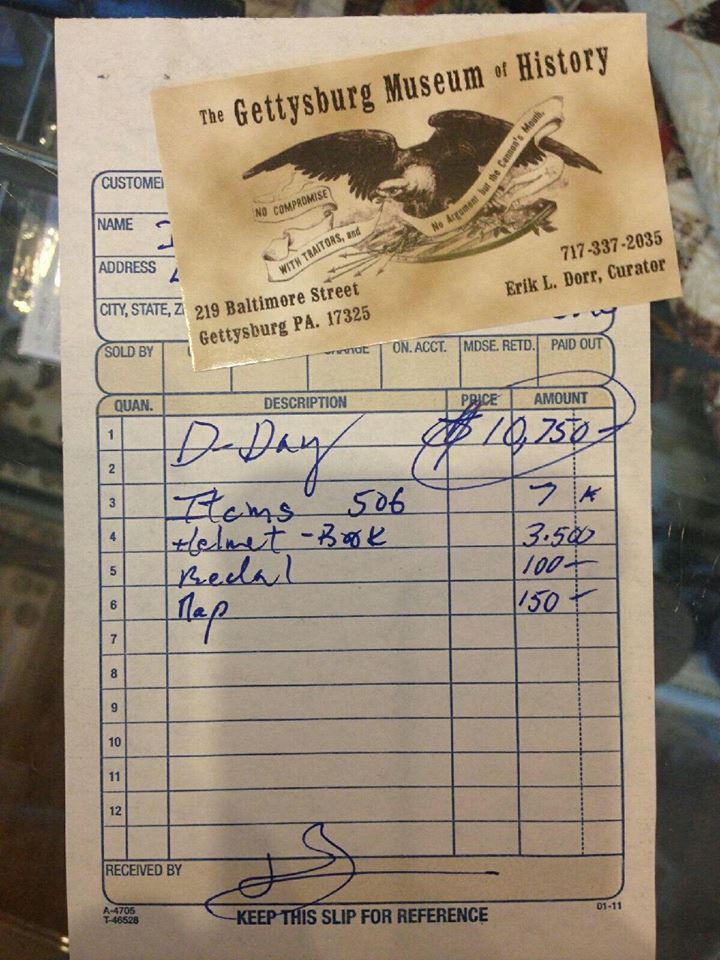 The Gettysburg Museum of History
NO COMPROMISE
WITH TRAITORS, and
No Argument but the Cannon's Mouth.
219 Baltimore Street
Gettysburg PA. 17325
717-337-2035
Erik L. Dorr, Curator
CUSTOME
NAME
ADDRESS
CITY, STATE, Z
SOLD BY ON. ACCT. MDSE. RETD. PAID OUT
QUAN. DESCRIPTION PRICE AMOUNT
1 D-Day $10,750-
2
3 Items 506 7 K
4 Helmet - Book 3.500
5 Medal 100-
6 Map 150-
7
8
9
10
11
12
RECEIVED BY
A-4705
T-46528
KEEP THIS SLIP FOR REFERENCE
01-11